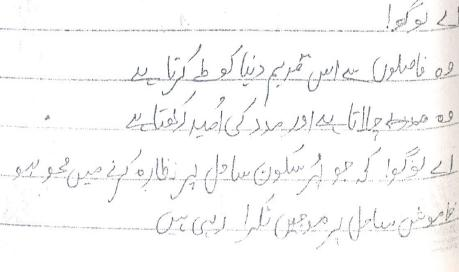 اے لوگو!
وہ فاصلوں سے اس قدیم دنیا کو طے کرتا ہے
وہ چلاتا ہے اور مدد کی اُمید رکھتا ہے
اے لوگو! کہ جو پُر سکون ساحل پر نظارہ کرنے میں محو ہو
خاموش ساحل پر موجیں ٹکرا رہی ہیں